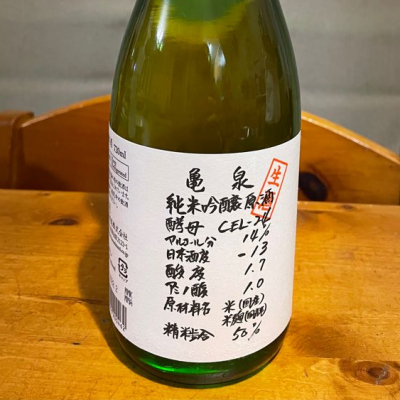 亀 泉
生酒
純米吟醸原酒
酵母 CEL-24
アルコール分 14%
日本酒度 -13
酸度 1.7
アミノ酸 1.0
原材料名 米(国産)
米麹(国産米)
精米歩合 50%
720ml